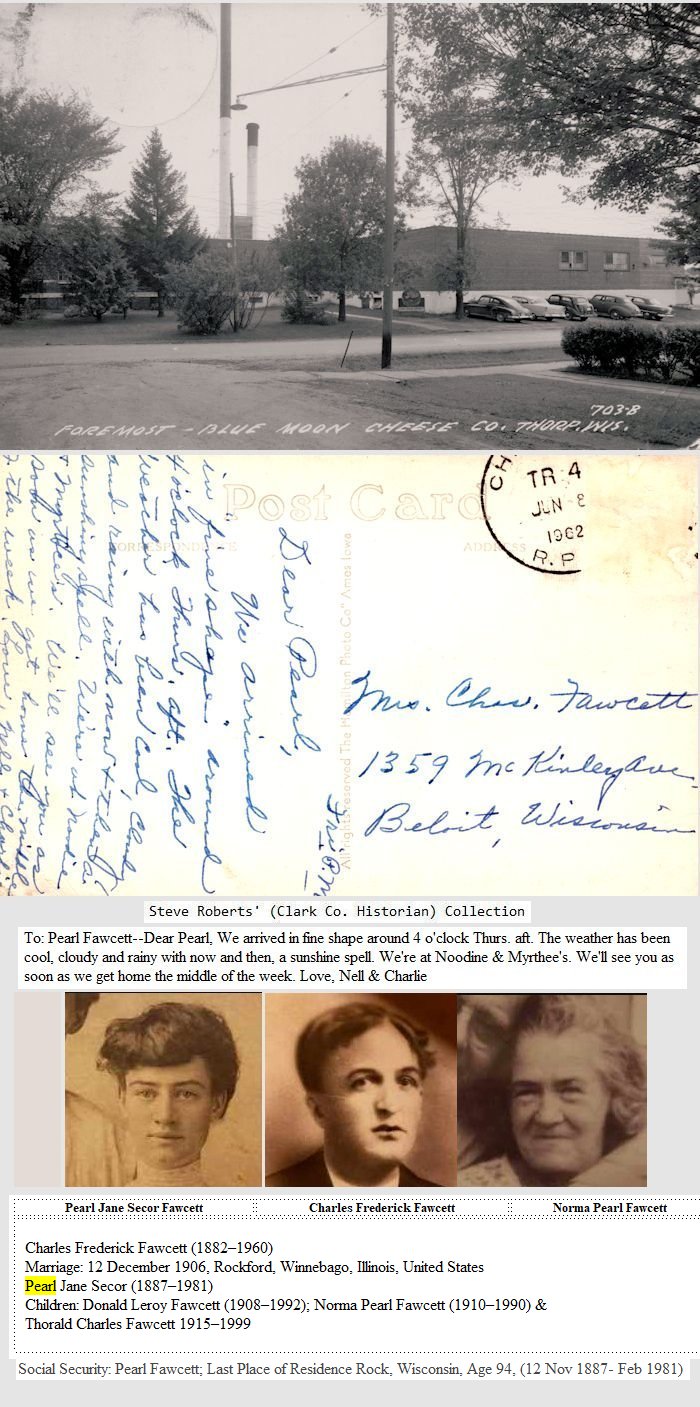 703-B
FOREMOST - BLUE MOON CHEESE CO. THORP, WIS.
Post Card
CORRESPONDENCE
ADDRESS
CH
TR 4
JUN -8
1962
R.P
All rights reserved The Photo Co" Ames Iowa
Fri P.M.
Dear Pearl,
We arrived
in fine shape around
4 o'clock Thurs. aft. The
weather has been cool, cloudy
and rainy with now & then a
sunshine spell. We're at
& We'll see you as
soon as we get home the middle
of the week. Love, Nell & Charlie
Mrs. Chas. Fawcett
1359 McKinley Ave.
Beloit, Wisconsin
Steve Roberts' (Clark Co. Historian) Collection
To: Pearl Fawcett--Dear Pearl, We arrived in fine shape around 4 o'clock Thurs. aft. The weather has been
cool, cloudy and rainy with now and then, a sunshine spell. We're at Noodine & Myrthee's. We'll see you as
soon as we get home the middle of the week. Love, Nell & Charlie
Pearl Jane Secor Fawcett
Charles Frederick Fawcett
Norma Pearl Fawcett
Charles Frederick Fawcett (1882–1960)
Marriage: 12 December 1906, Rockford, Winnebago, Illinois, United States
Pearl Jane Secor (1887–1981)
Children: Donald Leroy Fawcett (1908–1992); Norma Pearl Fawcett (1910–1990) &
Thorald Charles Fawcett 1915–1999
Social Security: Pearl Fawcett; Last Place of Residence Rock, Wisconsin, Age 94, (12 Nov 1887- Feb 1981)